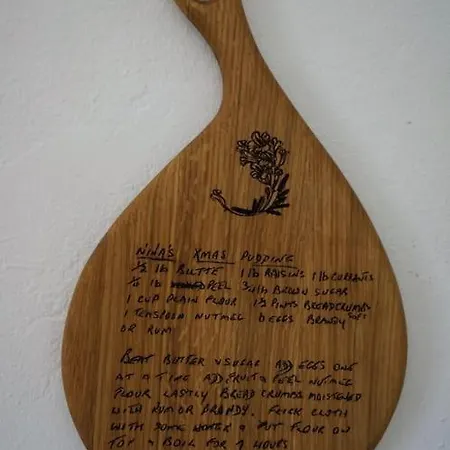 NINA'S XMAS PUDDING
½ lb BUTTE 1 lb RAISINS 1 lb CURRENTS
½ lb PEEL ¾ lb BROWN SUGAR
1 CUP PLAIN FLOUR 1½ PINTS BREADCRUMBS
1 TEASPOON NUTMEG 6 EGGS BRANDY SOFT
OR RUM
BEAT BUTTER & SUGAR ADD EGGS ONE
AT A TIME ADD FRUIT & PEEL NUTMEG
FLOUR LASTLY BREADCRUMBS MOISTENED
WITH RUM OR BRANDY. CLOTH
WITH WATER & PUT FLOUR ON
TOP & BOIL FOR 7 HOURS